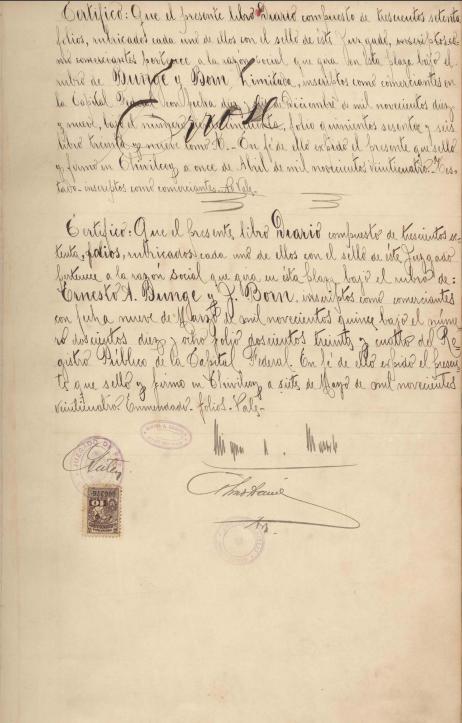 Certifico: Que el presente libro Diario compuesto de trescientos setenta
folios, rubricados cada uno de ellos con el sello de éste Juzgado, inscriptos como
comerciantes pertenece a la razón social que gira en esta plaza bajo el
rubro de Bunge y Born Limitada, inscriptos como comerciantes en
la Capital con fecha diez y Diciembre de mil novecientos diez
y nueve, bajo el número cincuenta, folio quinientos sesenta y seis
libro treinta y nueve En fé de ello expido el presente que sello
y firmo en Chivilcoy a once de Abril de mil novecientos veinticuatro. Tes-
tado-inscriptos como comerciantes-No Vale-
Error
Certifico: Que el presente libro Diario compuesto de trescientos se-
tenta folios, rubricados cada uno de ellos con el sello de éste Juzgado
pertenece a la razón social que gira en ésta plaza bajo el rubro de:
Ernesto A. Bunge y J. Born, inscriptos como comerciantes
con fecha nueve de Marzo de mil novecientos quince bajo el núme-
ro doscientos diez y ocho folio doscientos treinta y cuatro del Re-
gistro Público de la Capital Federal. En fé de ello expido el presen-
te que sello y firmo en Chivilcoy a siete de Mayo de mil novecientos
veinticuatro. Enmendado-folios-Vale-
10